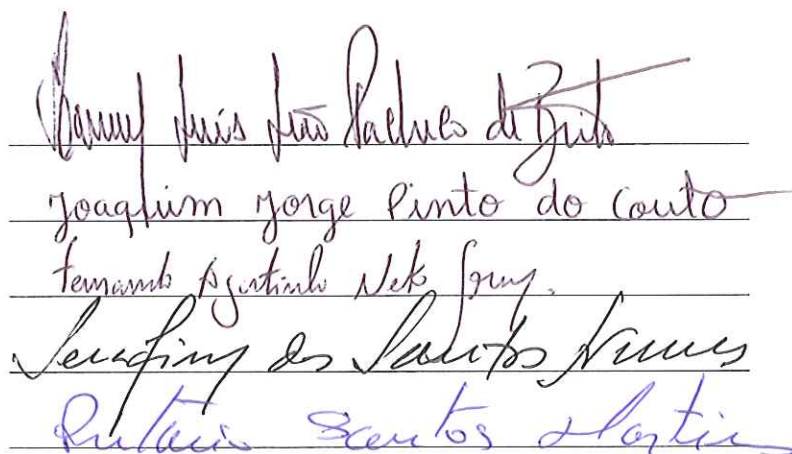 Manuel Luís João Pacheco de Brito
Joaquim Jorge Pinto do Couto
Fernando Agostinho Neto
Serafim dos Santos Nunes
Santos Martins